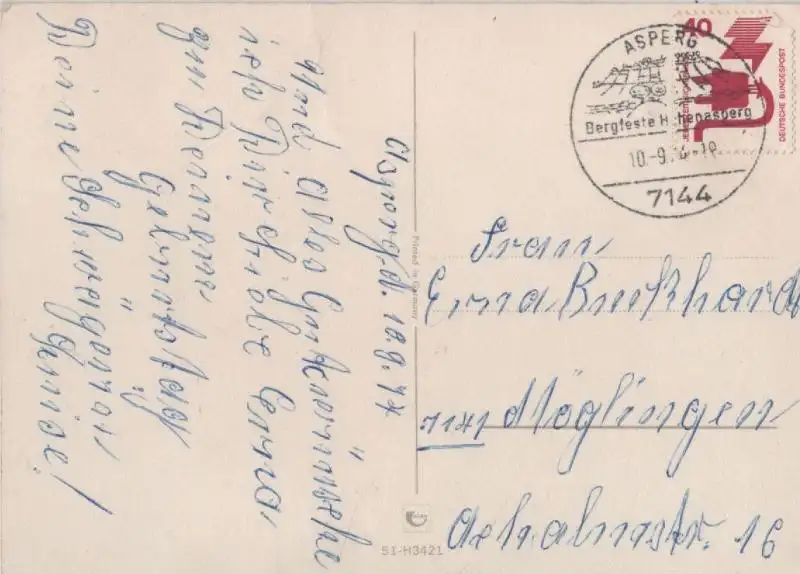 Asperg d. 10.9.74
Und Alles Gute wünsche
ich Dir liebe Erna
zu Deinem
Geburtstag
Deine Schwägerin
Luise!
ASPERG
Bergfeste Hohenasperg
10.-9.
7144
40
DEUTSCHE BUNDESPOST
Frau
Erna Burkhardt
7141 Möglingen
Achalmstr. 16
Printed in Germany
51-H3421